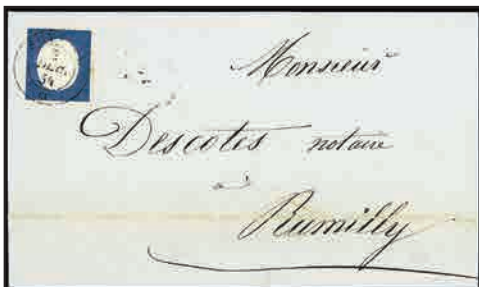 DEC.
54
Monsieur
Descotes notaire
a
Rumilly